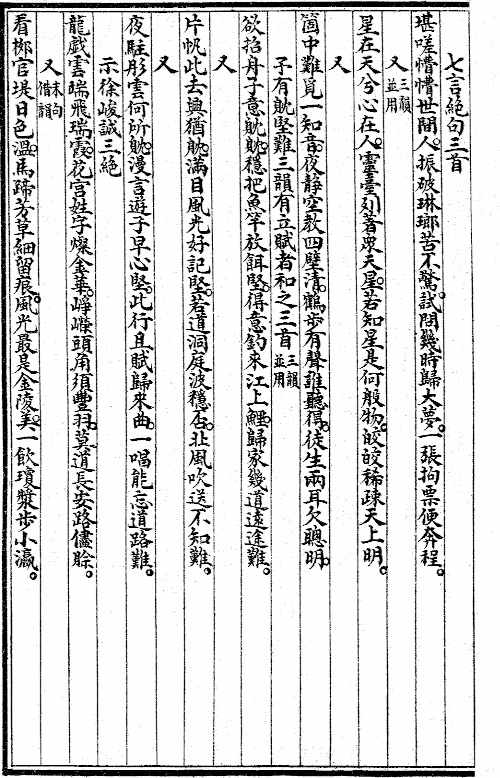 七言絕句三首
堪嗟懵懵世間人。振破琳瑯苦不驚。試問幾時歸大夢。一張拘票便奔程。
又 三韻並用
星在天兮心在人。靈臺列著眾天星。若知星是何般物。皎皎稀疎天上明。
又
箇中難覓一知音。夜靜空教四壁清。鶴步有聲誰聽得。徒生兩耳欠聰明。
予有躭堅難三韻有立賦者和之三首 三韻並用
欲招舟子意躭躭。穩把魚竿放餌堅。得意釣來江上鱷。歸家幾道遠途難。
又
片帆此去興猶躭。滿目風光好記堅。若道洞庭波穩否。北風吹送不知難。
又
夜駐彤雲何所躭。漫言遊子早心堅。此行且賦歸來曲。一唱能忘道路難。
示徐峻誠三絕
龍戲雲端飛瑞霞。花宮姓字燦金華。崢嶸頭角須豐羽。莫道長安路儘賒。
又 末句借韻
看椰官堤日色溫。馬蹄芳草細留痕。風光最是金陵美。一飲瓊漿步小瀛。